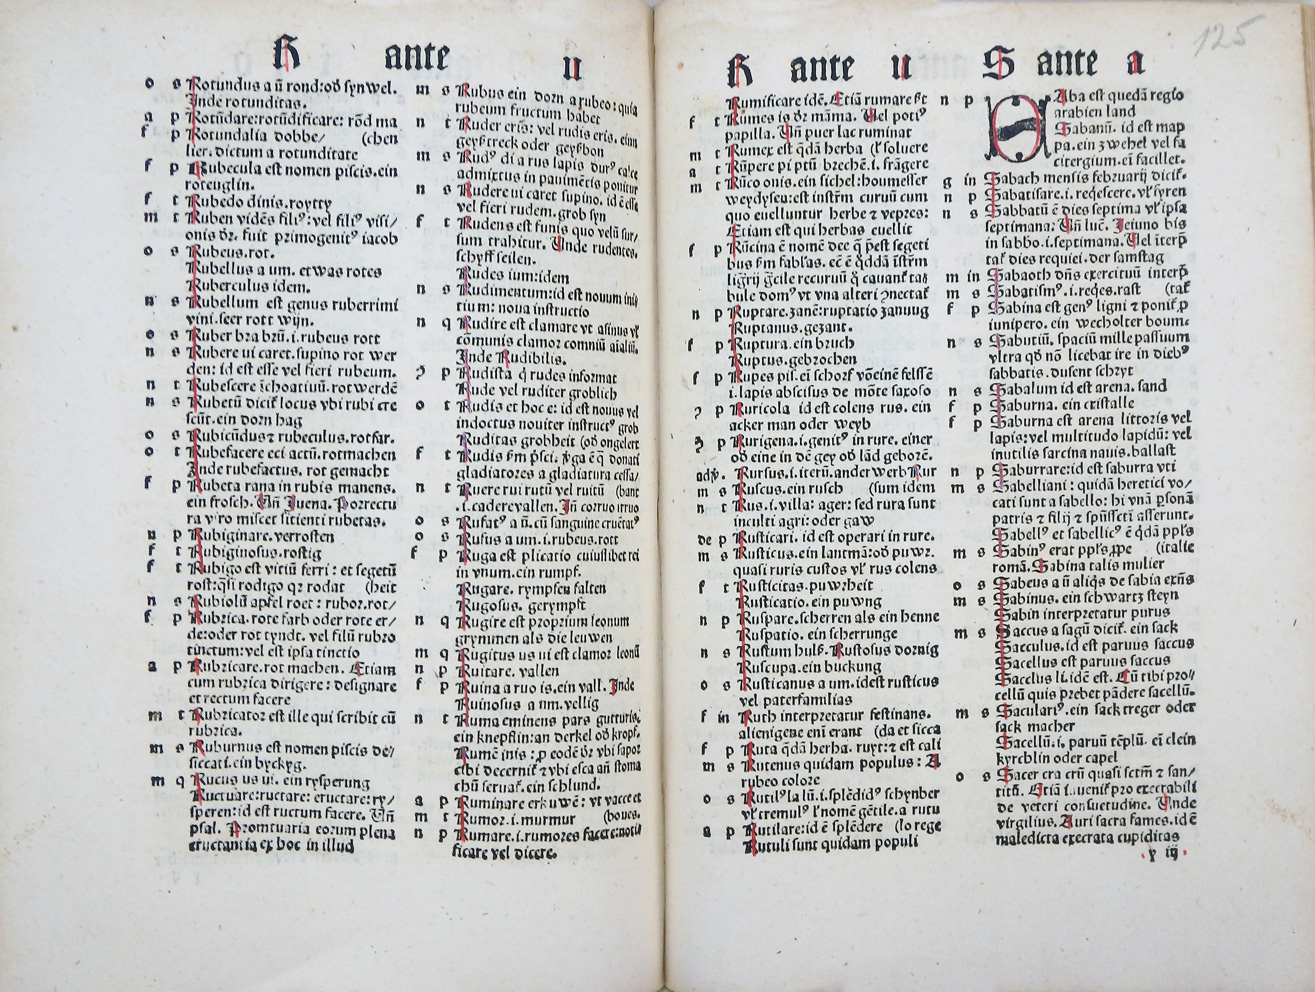 R ante u
o s Rotundus a ū rond:od̄ synwel.
Inde rotunditas.
a p Rotūdare:rotūdificare: rōd ma
f p Rotundalia dobbe/ (chen
lier. dictum a rotunditate
f p Rubecula est nomen piscis.ein
roteuglin.
f t Rubedo dinis.roytty
m t Ruben vidēs filꝰ: vel filꝰ visi/
onis dr̄. fuit primogenitꝰ iacob
o s Rubeus.rot.
Rubellus a um. etwas rotes
Ruberculus idem.
n s Rubellum est genus ruberrimi
vini.seer rott wijn.
o s Ruber bra brū.i.rubeus rott
n s Rubere ui caret.supino rot wer
den: id est esse vel fieri rubeum.
n t Rubescere īchoatiuū.rot werdē
n s Rubetū dicit̄ locus vbi rubi cre
scūt.ein dorn hag
o s Rubicūdusꝛ rubeculus.rotfar.
o t Rubefacere eci actū.rotmachen
Inde rubefactus. rot gemacht
f p Rubeta rana in rubis manens.
ein frosch. Vn̄ Juena. Porrectu
ra vīro miscet sitienti rubetas.
n p Rubiginare.verrosten
f t Rubiginosus.rostig
f t Rubigo est vitiū ferri : et segetū
rost:q̄si rodigo qꝛ rodat (heit
n s Rubiolū apfel roet : rubor.rot/
f p Rubrica.rote farb oder rote er/
de:oder rot tyndt. vel filū rubro
tinctum:vel est ipsa tinctio
a p Rubricare.rot machen. Etiam
cum rubrica dirigere : designare
et rectum facere
m t Rubricator est ille qui scribit cū
rubrica.
m s Ruburnus est nomen piscis de//
siccati.ein byckyg.
m q Ructus us ui. ein rysperung
Ructuare:ructare: eructare:ry/
speren:id est ructum facere. Vn̄
psal. Promtuaria eorum plena
eructantia ex hoc in illud
m s Rubus ein dorn a rubeo: quia
rubeum fructum habet
n t Ruder eris: vel rudis eris. einn
geyßtreck oder geyßbon
m s Rudꝰ di a rus lapis durꝰ calce
admixtus in pauimētis ponitur
n s Rudere ui caret supino. id ē esse
vel fieri rudem. grob syn
f t Rudens est funis quo velū sur/
sum trahitur. Vnde rudentes.
schyff seilen.
Rudes ium:idem
n s Rudimentum:id est nouum ini/
tium: noua instructio
n q Rudire est clamare vt asinus vł
cōmunis clamor omniū aialiū.
Inde Rudibilis.
ꝯ p Rudista q̄ rudes informat
Rude vel ruditer groblich
o t Rudis et hoc e: id est nouus vel
indoctus nouiter instructꝰ grob
Ruditas grobheit (od̄ ongelert
f t Rudis fm p̄sci. v̄ga ē q̄ donati
gladiatores a gladiatura cessa/
n t Ruere rui rutū vel ruitū (bant
.i.cadere vallen. In̄ corruo irruo
o s Rufatꝰ a ū.cū sanguine cruētatꝰ
o s Rufus a um.i.rubeus.rott
f p Ruga est plicatio cuiuslibet rei
in vnum.ein rumpf.
Rugare. rympfen falten
Rugosus. gerympft
n q Rugire est proprium leonum
grymmen als die leuwen
m q Rugitus us ui est clamor leonū
n p Ruitare. vallen
f p Ruina a ruo is.ein vall. Inde
Ruinosus a nm.vellig
n t Ruma eminens pars gutturis.
ein knepflin:an derkel od̄ kropf.
Rumē inis : ꝓ eodē dr̄ vbi sapor
cibi decernit̄ ꝛ vbi esca añ stoma
chū seruat̄.ein schlund.
a p Ruminare erkuwē: vt vacce et
m t Rumor.i.murmur (boues.
n p Rumare.i.rumores facere:noti
ficare vel dicere.
R ante u S ante a
125
Rumificare idē. Etiā rumare ē
f t Rumes is dr̄ māma. Vel potiꝰ
papilla. Vn̄ puer lac ruminat
m t Rumex est q̄dā herba (ł soluere
a t Rūpere pi ptū brechē.i. frāgere
m t Rūco onis.ein sichel:houmesser
weydyseu:est instr̄m curuū cum
quo euelluntur herbe ꝛ vepres:
Etiam est qui herbas euellit
f p Rūcina ē nomē dee q̄ p̄est segeti
bus fm fabłas. eē ē q̄ddā īstr̄m
ligr̄ij ḡcile recuruū q̄ cauant̄ ta
bule domꝰ vt vna alteri ꝯnectat̄
n p Ruptare.zanē:ruptatio zanuug
Ruptanus.gezant.
f p Ruptura.ein bruch
Ruptus.gebrochen
f p Rupes pis.ei schorf vō eine felssē
i.lapis abscisus de mōte saxoso
ꝯ p Ruricola id est colens rus. ein
acker man oder weyb
ꝫ p Rurigena.i.genitꝰ in rure. einer
od̄ eine in dē gey od̄ lād geborē.
adv̄. Rursus.i.iterū.ander werb Rur
m s Ruscus.ein rusch (sum idem
n t Rus.i.villa: ager: sed rura sunt
inculti agri: oder gaw
de p Rusticari. id est operari in rure.
m s Rusticus.ein lantmā:od̄ puwr.
quasi ruris custos vł rus colens
f t Rusticitas.puwrheit
Rusticatio.ein puwng
n p Ruspare.scherren als ein henne
Ruspatio. ein scherrunge
n s Rustum huls. Rustosus dornig
Ruscupa.ein buckung
o s Rusticanus a um.idest rusticus
vel paterfamilias
f in Ruth interpretatur festinans.
alienigene enī erant (da et sicca
f p Ruta q̄dā herba. ruyt:ꝛ est cali
m s Rutenus quidam populus : A
rubeo colore
o s Rutilꝰ la lū.i.splēdidꝰ schynber
vł tremulꝰ ł nomē gētile.a rutu
a p Rutilare:id ē splēdere (lo rege
Rutuli sunt quidam populi
n p SAba est quedā regio
arabien land
Sabanū. id est map
pa.ein zwehel vel fa
citergium.ei facillet.
g in Sabach mensis februarij dicit̄.
n p Sabatisare.i. reqescere. vł fyren
n s Sabbatū ē dies septima vł ipsa
septimana: Vn̄ luē. Jeiuno bis
in sabbo.i.septimana. Vel īterp̄
tat̄ dies requiei.der samstag
m in Sabaoth dn̄s exercituū interp̄
m s Sabatismꝰ.i.reqes.rast (tat̄
f p Sabina est genꝰ ligni ꝛ ponit̄ ꝓ
iunipero. ein wecholter boum.
n s Sabutiū. spaciū mille passuum
vltra qd̄ nō licebat ire in diebꝰ
sabbatis.dusent schryt
n s Sabalum id est arena. sand
f p Saburna. ein cristalle
f p Saburna est arena littoris vel
lapis: vel multitudo lapidū: vel
inutilis sarcina nauis.ballast
n p Saburrare:id est saburra vti
m s Sabelliani : quidā heretici vo/
cati sunt a sabello: hi vnā ꝑsonā
patris ꝛ filij ꝛ spūs sctī asserunt.
Sabellꝰ et sabellicꝰ ē q̄dā ppłs
m s Sabinꝰ erat ppłs ꝓpe (italie
romā. Sabina talis mulier
o s Sabeus a ū aliq̄s de sabia exn̄s
m s Sabinus. ein schwartz steyn
Sabin interpretatur purus
m s Saccus a sagū dicit̄. ein sack
Sacculus.id est paruus saccus
Sacellus est paruus saccus
Sacelus li.idē est. Cū tibi pro//
cellū quis prebet pādere sacellū.
m s Saculariꝰ.ein sack treger oder
sack macher
Sacellū.i. paruū tēplū. ei clein
kyrchlin oder capel
o s Sacer cra crū quasi sctm̄ ꝛ san/
titū. Etiā inuenit̄ pro execrabili
de veteri consuetudine. Vnde
virgilius. Auri sacra fames.id ē
maledicta execrata cupiditas
y iij